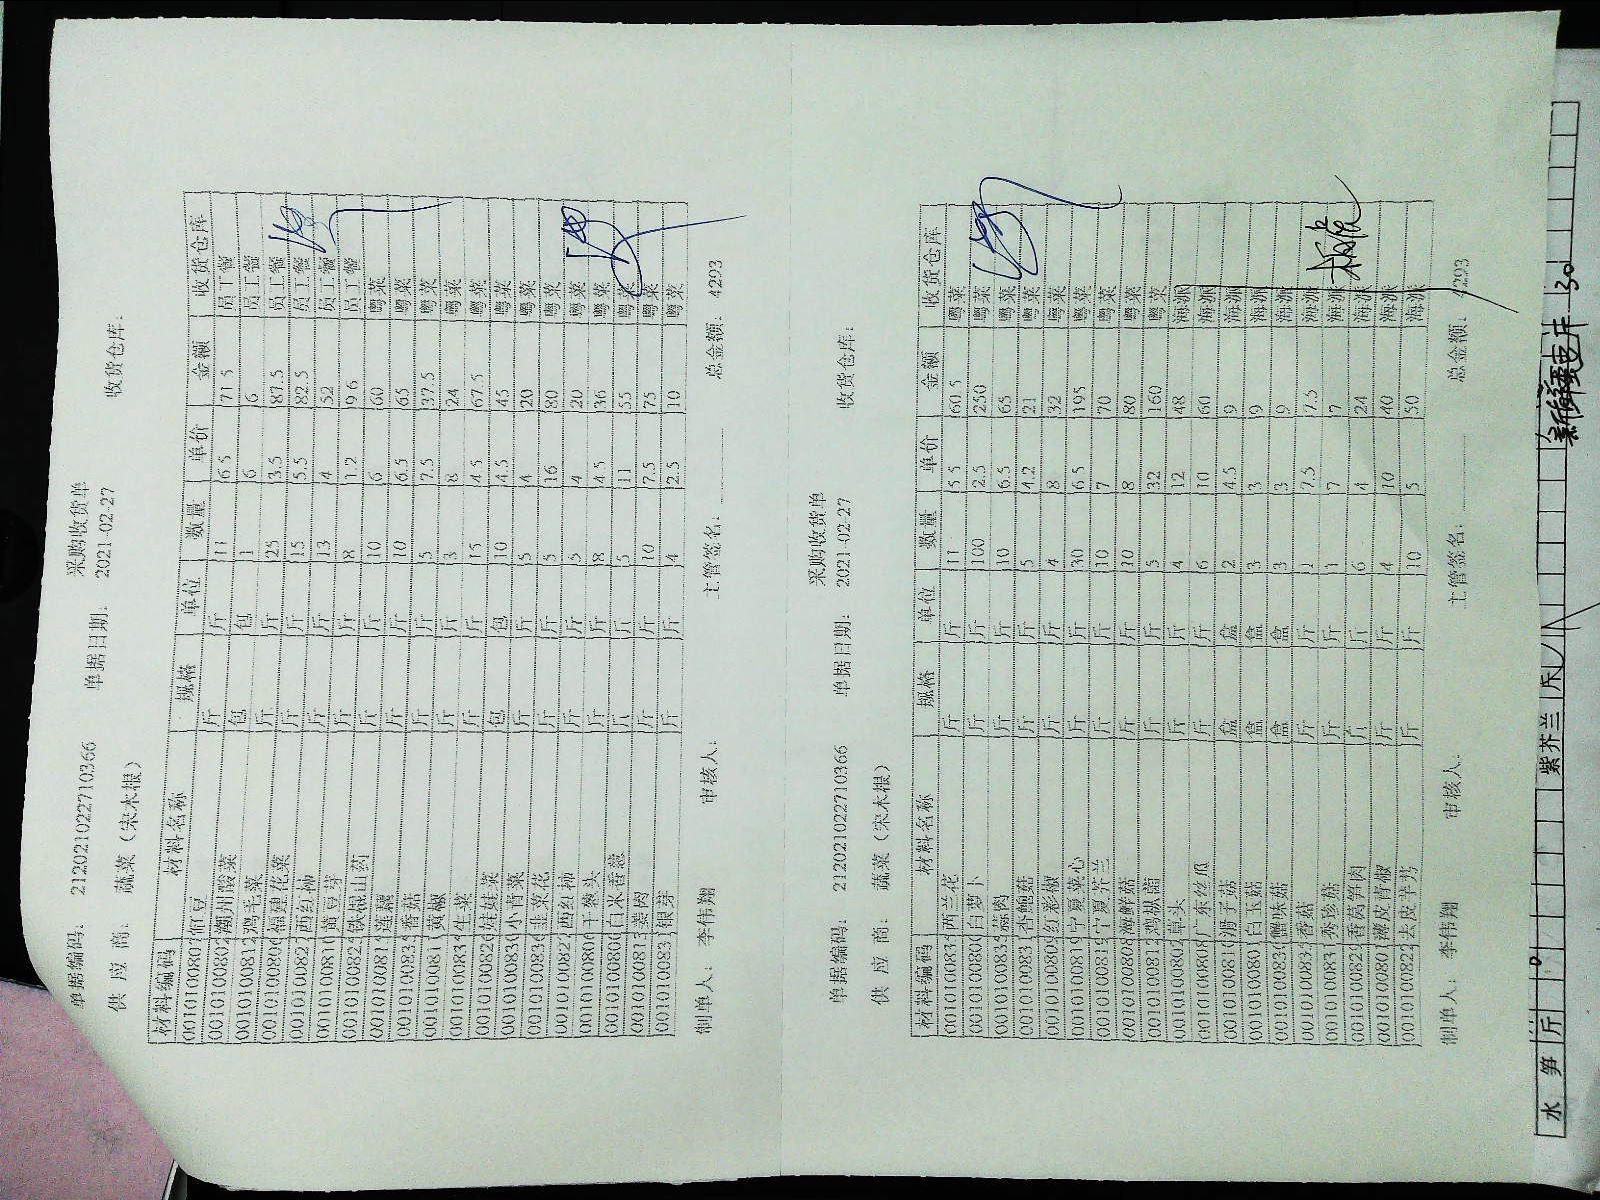 采购收货单
单据编码: 212021022710366 单据日期: 2021-02-27 收货仓库:
供 应 商: 蔬菜 (宋木根)
材料编码 材料名称 规格 单位 数量 单价 金额 收货仓库
0010100807 豇豆 斤 斤 11 6.5 71.5 员工餐
0010100802 潮州酸菜 包 包 1 6 6 员工餐
0010100812 鸡毛菜 斤 斤 25 3.5 87.5 员工餐
0010100806 福建花菜 斤 斤 15 5.5 82.5 员工餐
0010100827 西红柿 斤 斤 13 4 52 员工餐
0010100810 黄豆芽 斤 斤 8 1.2 9.6 员工餐
0010100824 铁棍山药 斤 斤 10 6 60 粤菜
0010100814 莲藕 斤 斤 10 6.5 65 粤菜
0010100835 香菇 斤 斤 5 7.5 37.5 粤菜
0010100811 黄椒 斤 斤 3 8 24 粤菜
0010100834 生菜 斤 斤 15 4.5 67.5 粤菜
0010100826 娃娃菜 包 包 10 4.5 45 粤菜
0010100830 小青菜 斤 斤 5 4 20 粤菜
0010100836 韭菜花 斤 斤 5 16 80 粤菜
0010100827 西红柿 斤 斤 5 4 20 粤菜
0010100806 干葱头 斤 斤 8 4.5 36 粤菜
0010100800 白米香葱 斤 斤 5 11 55 粤菜
0010100813 姜肉 斤 斤 10 7.5 75 粤菜
0010100833 银芽 斤 斤 4 2.5 10 粤菜
制单人: 李伟翔 审核人: 主管签名: 总金额: 4293
采购收货单
单据编码: 212021022710366 单据日期: 2021-02-27 收货仓库:
供 应 商: 蔬菜 (宋木根)
材料编码 材料名称 规格 单位 数量 单价 金额 收货仓库
0010100834 西兰花 斤 斤 11 5.5 60.5 粤菜
0010100800 白萝卜 斤 斤 100 2.5 250 粤菜
0010100835 蒜肉 斤 斤 10 6.5 65 粤菜
0010100831 杏鲍菇 斤 斤 5 4.2 21 粤菜
0010100809 红彩椒 斤 斤 4 8 32 粤菜
0010100819 宁夏菜心 斤 斤 30 6.5 195 粤菜
0010100819 宁夏芥兰 斤 斤 10 7 70 粤菜
0010100808 海鲜菇 斤 斤 10 8 80 粤菜
0010100812 鸡枞菌 斤 斤 5 32 160 粤菜
0010100802 草头 斤 斤 4 12 48 海派
0010100808 广东丝瓜 斤 斤 6 10 60 海派
0010100810 滑子菇 盒 盒 2 4.5 9 海派
0010100801 白玉菇 盒 盒 3 3 9 海派
0010100830 蟹味菇 盒 盒 3 3 9 海派
0010100835 香菇 斤 斤 1 7.5 7.5 海派
0010100831 秀珍菇 斤 斤 1 7 7 海派
0010100829 香莴笋肉 斤 斤 6 4 24 海派
0010100801 薄皮青椒 斤 斤 4 10 40 海派
0010100822 去皮芋艿 斤 斤 10 5 50 海派
制单人: 李伟翔 审核人: 主管签名: 总金额: 4293
水 笋 斤 紫芥兰 斤 新鲜蚕豆 斤 30